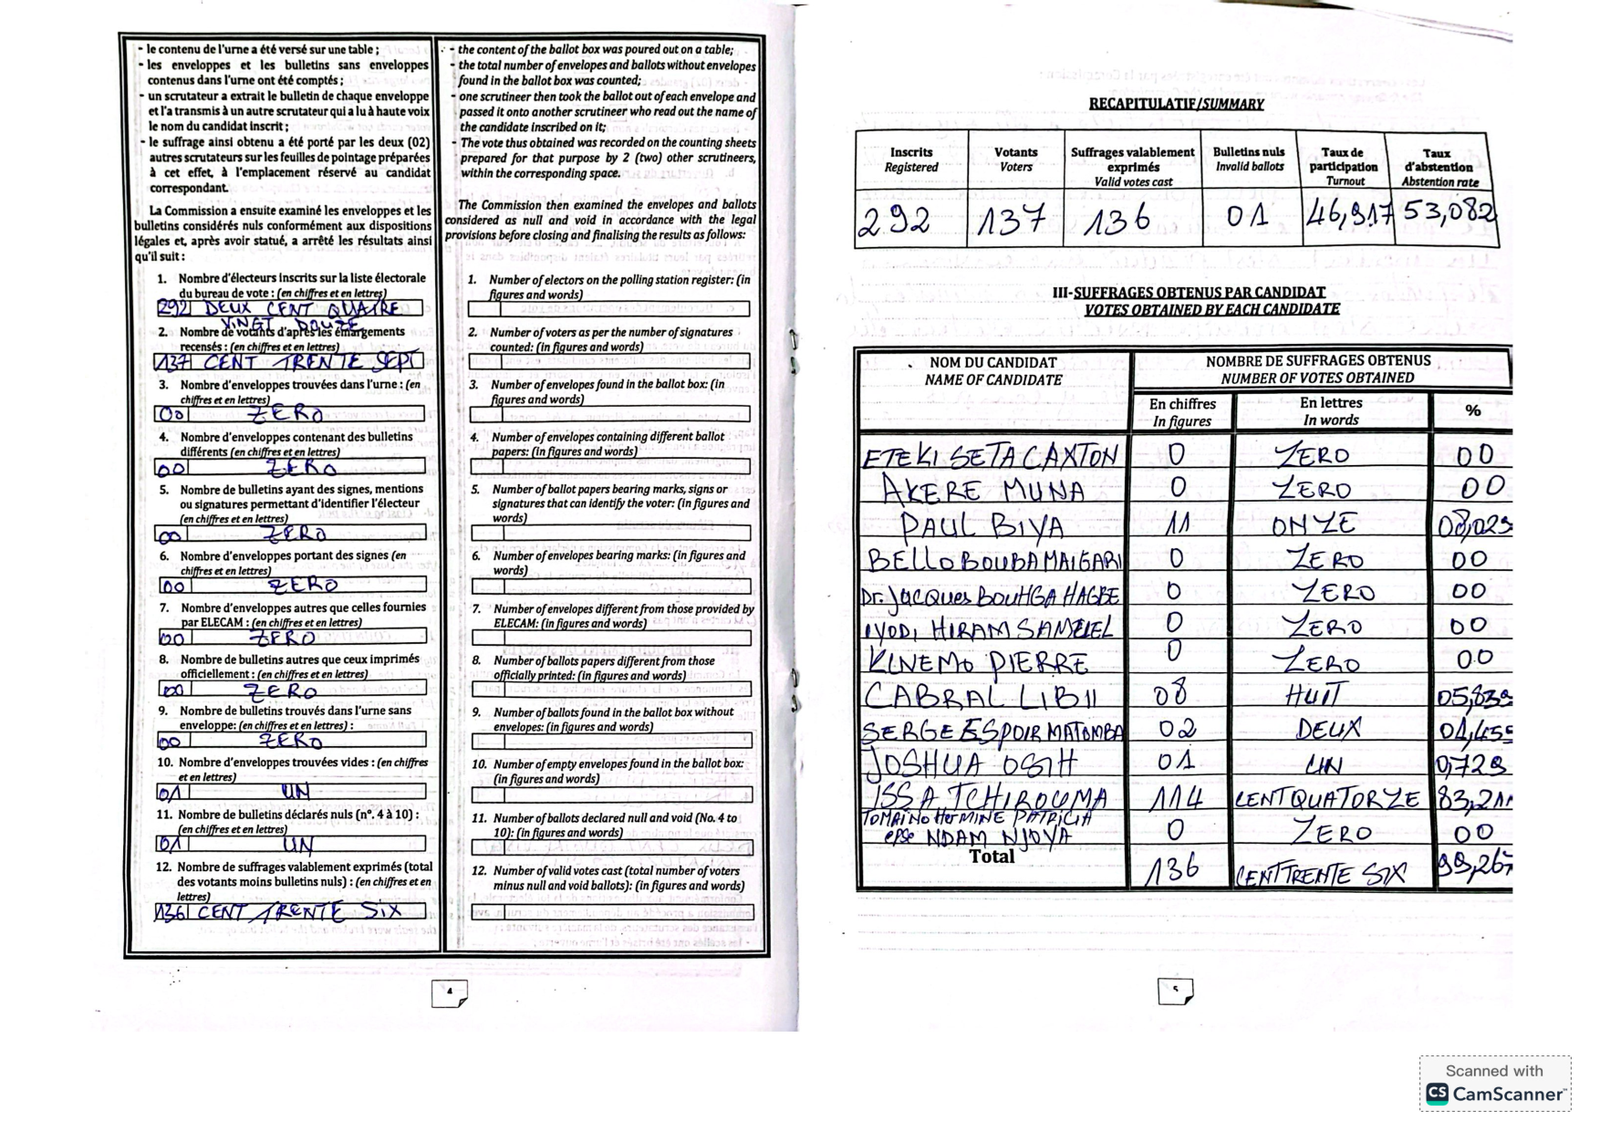 - le contenu de l'urne a été versé sur une table ;
- les enveloppes et les bulletins sans enveloppes
contenus dans l'urne ont été comptés ;
- un scrutateur a extrait le bulletin de chaque enveloppe
et l'a transmis à un autre scrutateur qui a lu à haute voix
le nom du candidat inscrit ;
- le suffrage ainsi obtenu a été porté par les deux (02)
autres scrutateurs sur les feuilles de pointage préparées
à cet effet, à l'emplacement réservé au candidat
correspondant.
La Commission a ensuite examiné les enveloppes et les
bulletins considérés nuls conformément aux dispositions
légales et, après avoir statué, a arrêté les résultats ainsi
qu'il suit :
1. Nombre d'électeurs inscrits sur la liste électorale
du bureau de vote : (en chiffres et en lettres)
292 DEUX CENT QUATRE
VINGT DOUZE
2. Nombre de votants d'après les émargements
recensés : (en chiffres et en lettres)
137 CENT TRENTE SEPT
3. Nombre d'enveloppes trouvées dans l'urne : (en
chiffres et en lettres)
00 ZERO
4. Nombre d'enveloppes contenant des bulletins
différents (en chiffres et en lettres)
00 ZERO
5. Nombre de bulletins ayant des signes, mentions
ou signatures permettant d'identifier l'électeur
(en chiffres et en lettres)
00 ZERO
6. Nombre d'enveloppes portant des signes (en
chiffres et en lettres)
00 ZERO
7. Nombre d'enveloppes autres que celles fournies
par ELECAM : (en chiffres et en lettres)
00 ZERO
8. Nombre de bulletins autres que ceux imprimés
officiellement : (en chiffres et en lettres)
00 ZERO
9. Nombre de bulletins trouvés dans l'urne sans
enveloppe: (en chiffres et en lettres) :
00 ZERO
10. Nombre d'enveloppes trouvées vides : (en chiffres
et en lettres)
01 UN
11. Nombre de bulletins déclarés nuls (n°. 4 à 10) :
(en chiffres et en lettres)
01 UN
12. Nombre de suffrages valablement exprimés (total
des votants moins bulletins nuls) : (en chiffres et en
lettres)
136 CENT TRENTE SIX
- the content of the ballot box was poured out on a table;
- the total number of envelopes and ballots without envelopes
found in the ballot box was counted;
- one scrutineer then took the ballot out of each envelope and
passed it onto another scrutineer who read out the name of
the candidate inscribed on it;
- The vote thus obtained was recorded on the counting sheets
prepared for that purpose by 2 (two) other scrutineers,
within the corresponding space.
The Commission then examined the envelopes and ballots
considered as null and void in accordance with the legal
provisions before closing and finalising the results as follows:
1. Number of electors on the polling station register: (in
figures and words)
2. Number of voters as per the number of signatures
counted: (in figures and words)
3. Number of envelopes found in the ballot box: (in
figures and words)
4. Number of envelopes containing different ballot
papers: (in figures and words)
5. Number of ballot papers bearing marks, signs or
signatures that can identify the voter: (in figures and
words)
6. Number of envelopes bearing marks: (in figures and
words)
7. Number of envelopes different from those provided by
ELECAM: (in figures and words)
8. Number of ballots papers different from those
officially printed: (in figures and words)
9. Number of ballots found in the ballot box without
envelopes: (in figures and words)
10. Number of empty envelopes found in the ballot box:
(in figures and words)
11. Number of ballots declared null and void (No. 4 to
10): (in figures and words)
12. Number of valid votes cast (total number of voters
minus null and void ballots): (in figures and words)
4
RECAPITULATIF/SUMMARY
Inscrits Registered Votants Voters Suffrages valablement exprimés Valid votes cast Bulletins nuls Invalid ballots Taux de participation Turnout Taux d'abstention Abstention rate
292 137 136 01 46,917 53,082
III-SUFFRAGES OBTENUS PAR CANDIDAT
VOTES OBTAINED BY EACH CANDIDATE
NOM DU CANDIDAT NOMBRE DE SUFFRAGES OBTENUS
NAME OF CANDIDATE NUMBER OF VOTES OBTAINED
En chiffres En lettres %
In figures In words
ETEKI SETA CAXTON 0 ZERO 00
AKERE MUNA 0 ZERO 00
PAUL BIYA 11 ONZE 08,029
BELLO BOUBA MAIGARI 0 ZERO 00
Dr. Jacques BOUHGA HAGBE 0 ZERO 00
IYODI HIRAM SAMUEL 0 ZERO 00
KINEMO PIERRE 0 ZERO 00
CABRAL LIBII 08 HUIT 05,839
SERGE ESPOIR MATOMBA 02 DEUX 01,459
JOSHUA OSIH 01 UN 0,729
ISSA TCHIROUMA 114 CENT QUATORZE 83,211
TOMAINO HERMINE PATRICIA
epse NDAM NJOYA 0 ZERO 00
Total 136 CENT TRENTE SIX 99,267
5
Scanned with
CS CamScanner